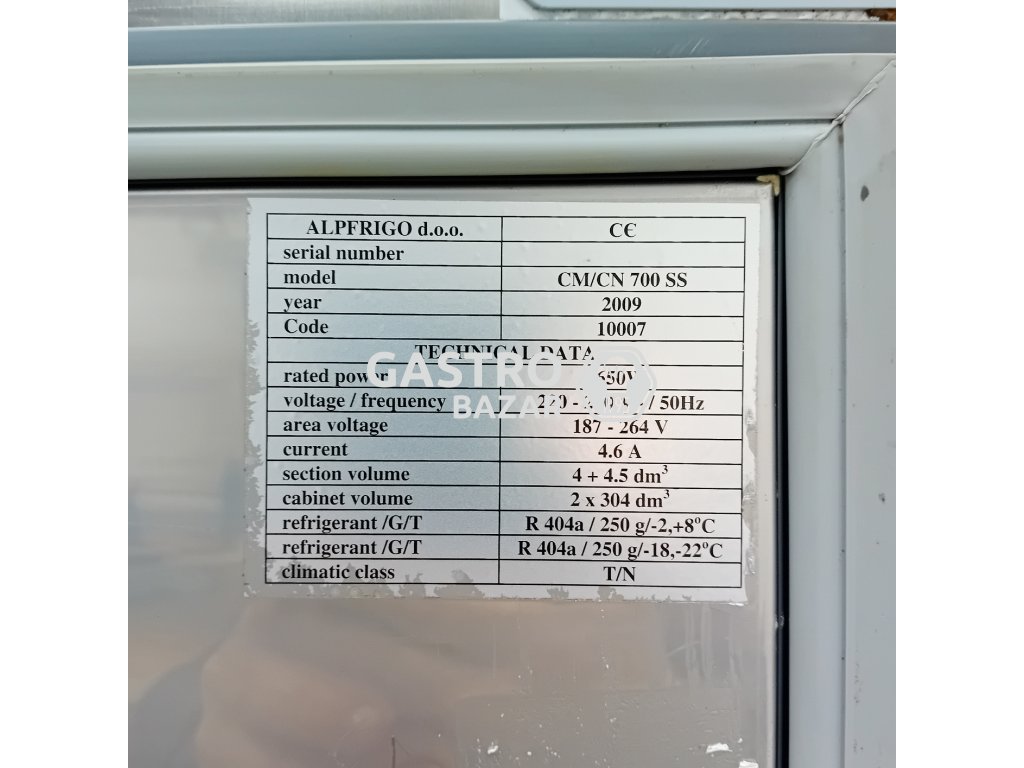 ALPFRIGO d.o.o. CE
serial number
model CM/CN 700 SS
year 2009
Code 10007
TECHNICAL DATA
GASTRO
rated power
BAZAR
voltage / frequency / 50Hz
area voltage 187 - 264 V
current 4.6 A
section volume 4 + 4.5 dm³
cabinet volume 2 x 304 dm³
refrigerant /G/T R 404a / 250 g/-2,+8ºC
refrigerant /G/T R 404a / 250 g/-18,-22ºC
climatic class T/N